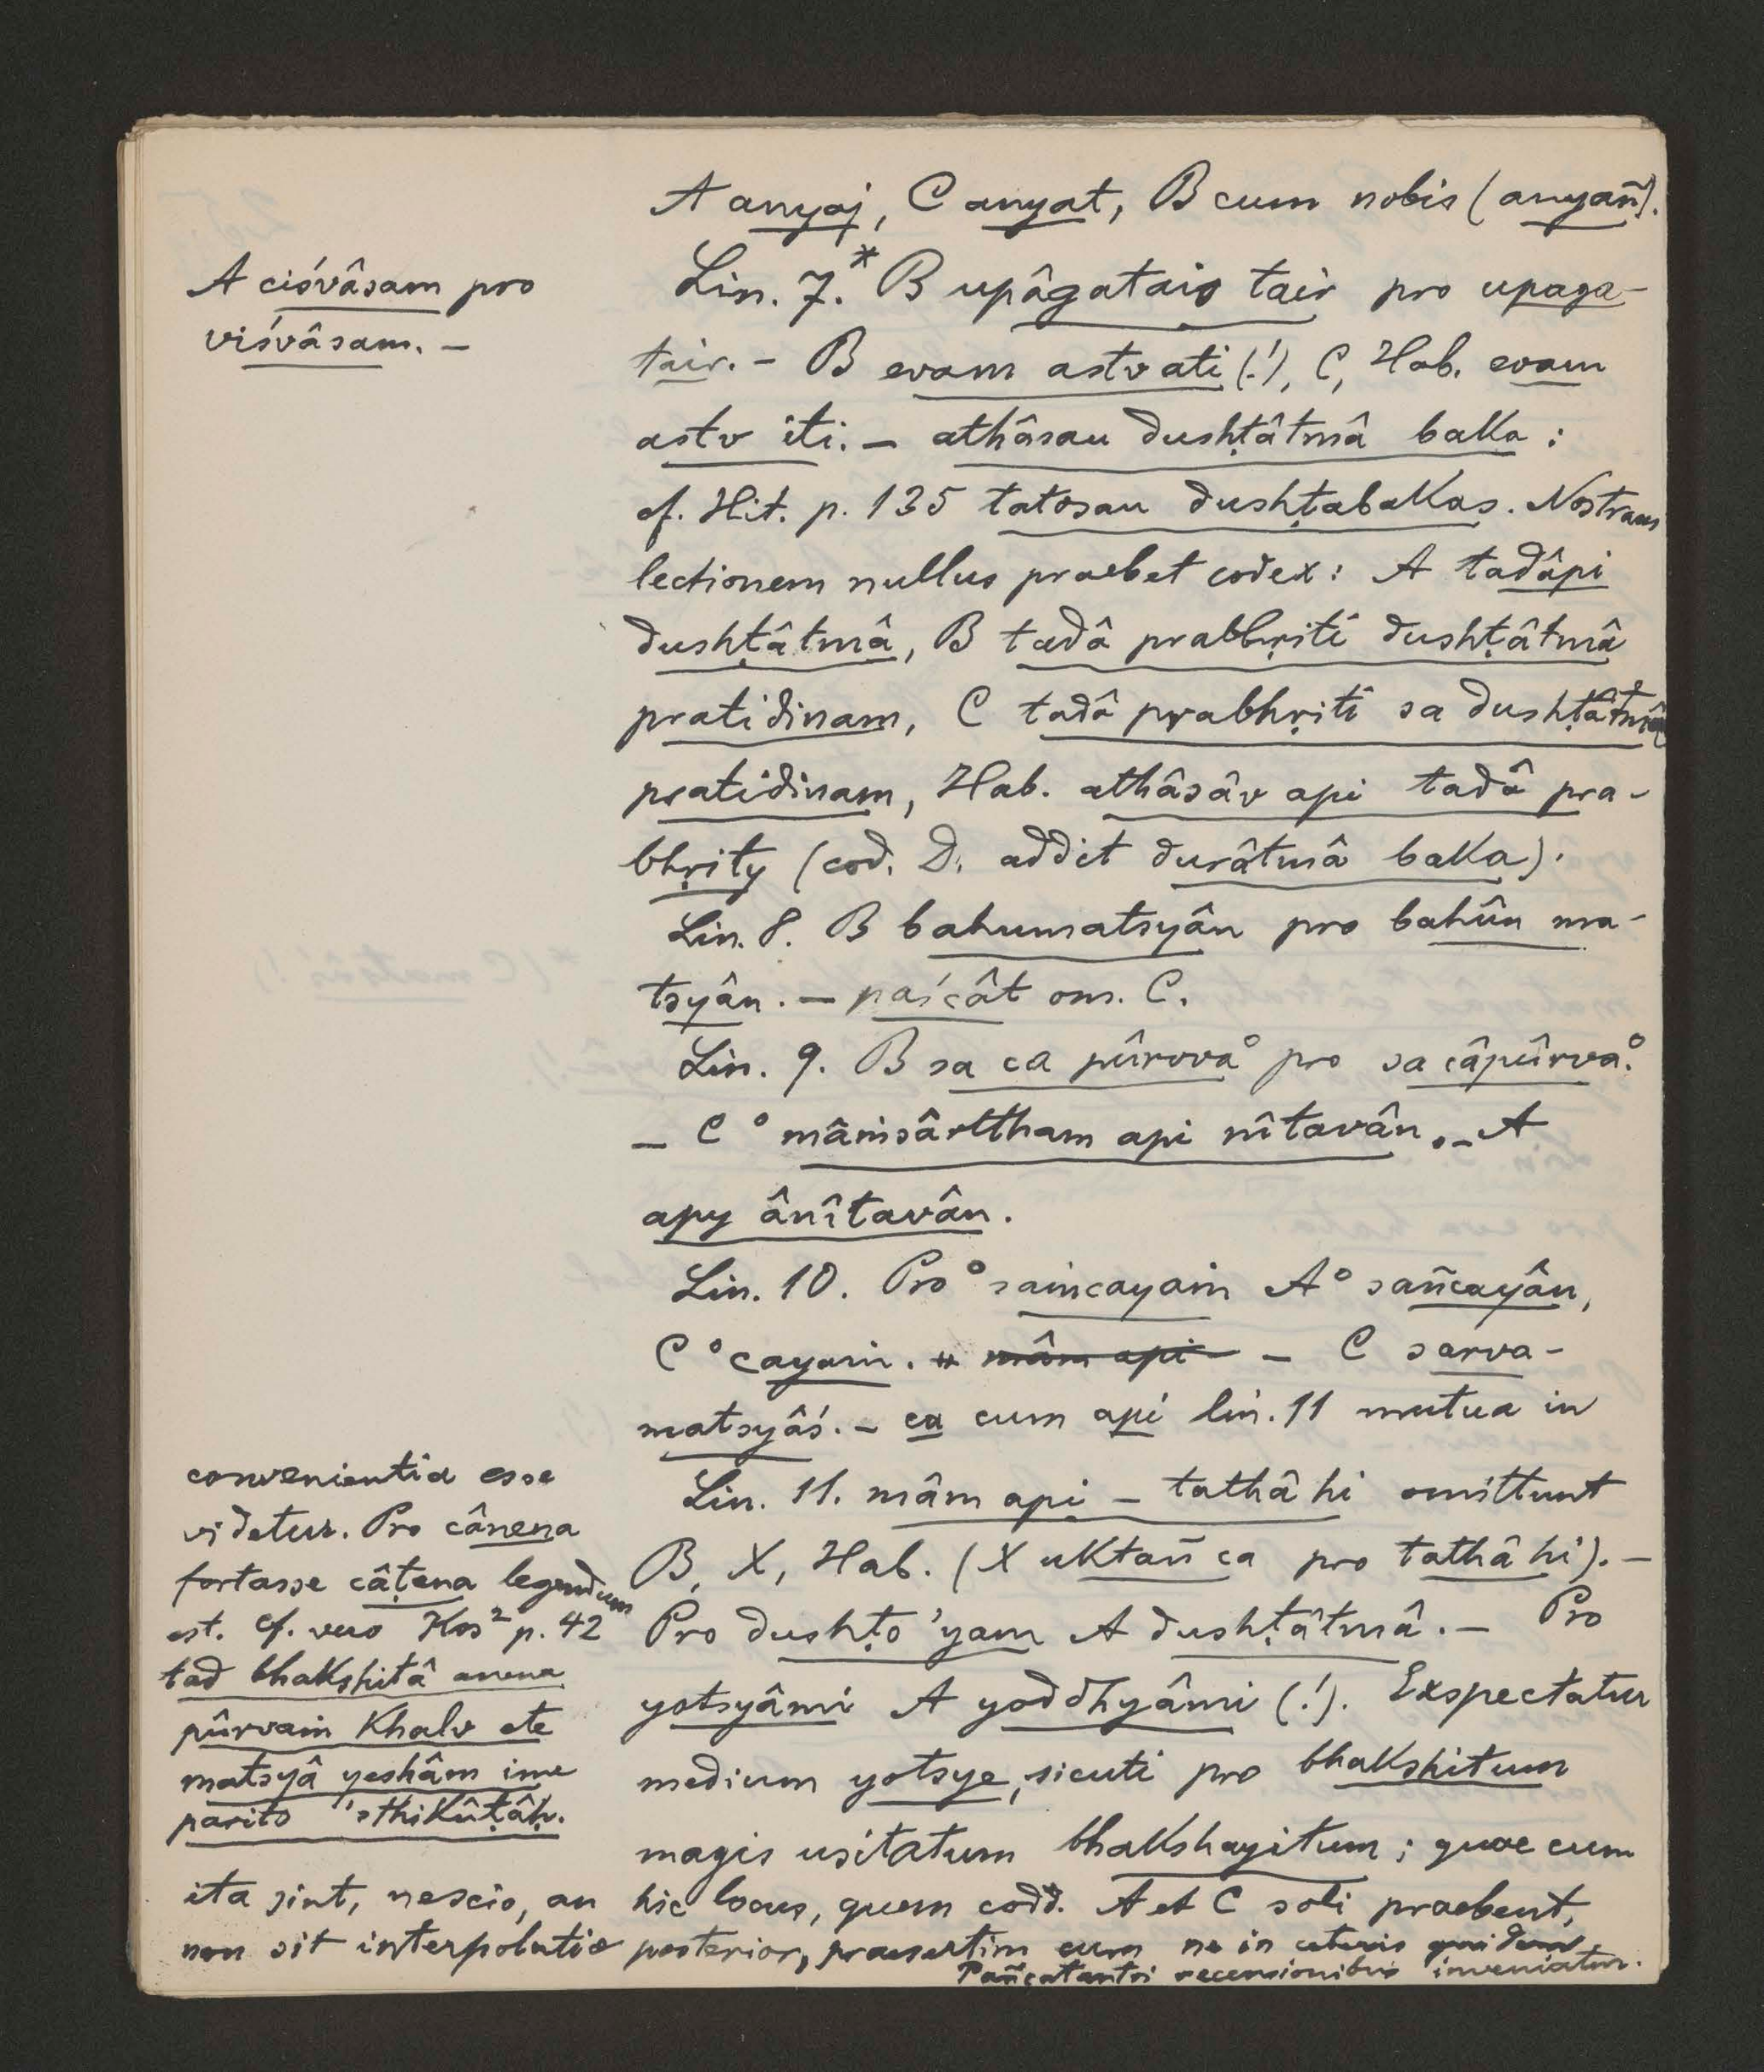 A anyaj, C anyat, B cum nobis (anyañ).
A ciśvâsam pro
viśvâsam. –
Lin. 7.* B upâgatais tair pro upaga-
tair. – B evam astv ati (!), C, Hab. evam
astv iti. – athâsau dushṭâtmâ baka :
cf. Hit. p. 135 tatosau dushṭabakas. Nostram
lectionem nullus praebet codex: A tadâpi
dushṭâtmâ, B tadâ prabhṛiti dushṭâtmâ
pratidinam, C tadâ prabhṛiti sa dushṭâtmâ
pratidinam, Hab. athâsâv api tadâ pra-
bhṛity (cod. D. addit durâtmâ baka).
Lin. 8. B bahumatsyân pro bahûn ma-
tsyân. – paścât om. C.
Lin. 9. B sa ca pûrvva° pro sa câpûrva°.
– C °mâṁsârttham api nîtavân. – A
apy ânîtavân.
Lin. 10. Pro °saṁcayaṁ A °sañcayân,
C °cayaṁ. mâm api – C sarva-
matsyâś. – ca cum api lin. 11 mutua in
convenientia esse
videtur. Pro cânena
fortasse câṭena legendum
est. Cf. vero Kos² p. 42
tad bhakshitâ anena
pûrvaṁ khalv ete
matsyâ yeshâm ime
parito 'sthikûṭâḥ.
Lin. 11. mâm api – tathâ hi omittunt
B, X, Hab. (X uktañ ca pro tathâ hi). –
Pro dushṭo 'yam A dushṭâtmâ. – Pro
yotsyâmi A yoddhyâmi (!). Exspectatur
medium yotsye, sicuti pro bhakshitum
magis usitatum bhakshayitum; quae cum
ita sint, nescio, an hic locus, quem codd. A et C soli praebent,
non sit interpolatio posterior, praesertim cum ne in ceteris quidem
Pañcatantri recensionibus inveniatur.